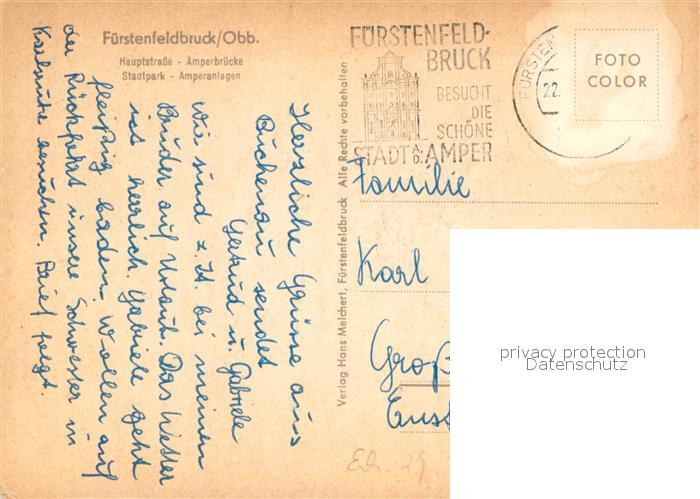 Fürstenfeldbruck/Obb.
Hauptstraße - Amperbrücke
Stadtpark - Amperanlagen
Herzliche Grüße aus
Buchenau sendet
Gertrud u. Gabriele
Wir sind z. Zt. bei meinem
Bruder auf Urlaub. Das Wetter
ist herrlich. Gabriele geht
fleißig baden. Wollen auf
der Rückfahrt unsere Schwester in
Karlsruhe besuchen. Brief folgt.
Verlag Hans Melchert, Fürstenfeldbruck Alle Rechte vorbehalten
FÜRSTENFELD-
BRUCK
BESUCHT
DIE
SCHÖNE
STADT A. D. AMPER
FÜRSTEN
22.
FOTO
COLOR
Familie
Karl
Groß
privacy protection
Datenschutz